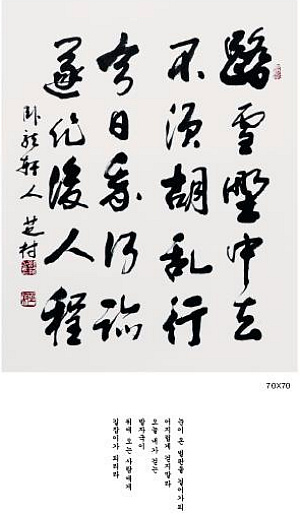 踏雪野中去
不須胡亂行
今日我行跡
遂作後人程
臥龍軒人 芝村
70X70
눈이 온 벌판을 걸어가되
어지럽게 걷지말라
오늘 내가 걷는
발자국이
뒤에 오는 사람에게
길잡이가 되리라